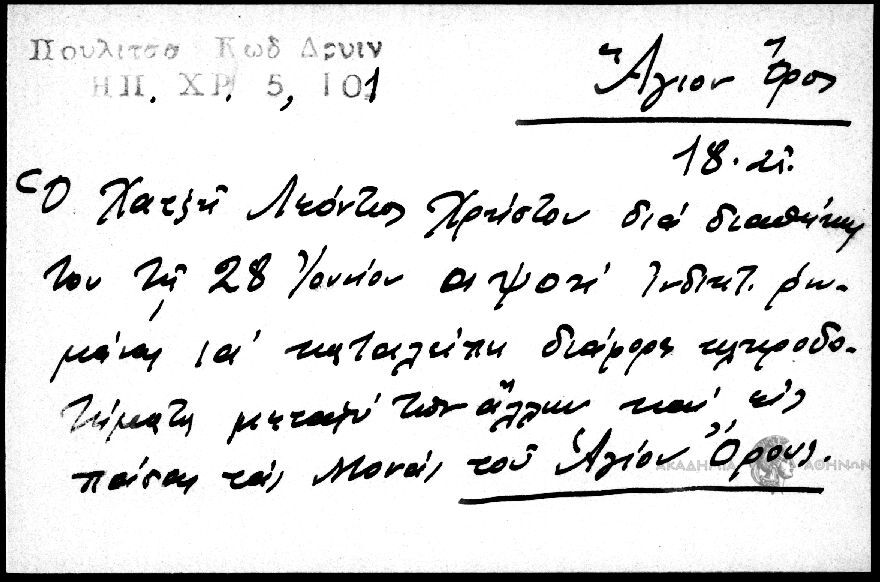 Πουλιτσα Κωδ Δρυιν
ΗΠ. ΧΡ. 5, 101
Ἅγιον Ὄρος
18. αἰ.
Ὁ Χατζῆ Λεόντιος Χρήστου διά διαθήκης
του τῇ 28 Ἰουνίου αψοε' Ἰνδικτ.
ια' καταλείπει διάφορα κληροδο-
τήματα μεταξύ των ἄλλων καί εἰς
πάσας τάς Μονάς τοῦ Ἁγίου Ὄρους.
ΑΚΑΔΗΜΙΑ ΑΘΗΝΩΝ